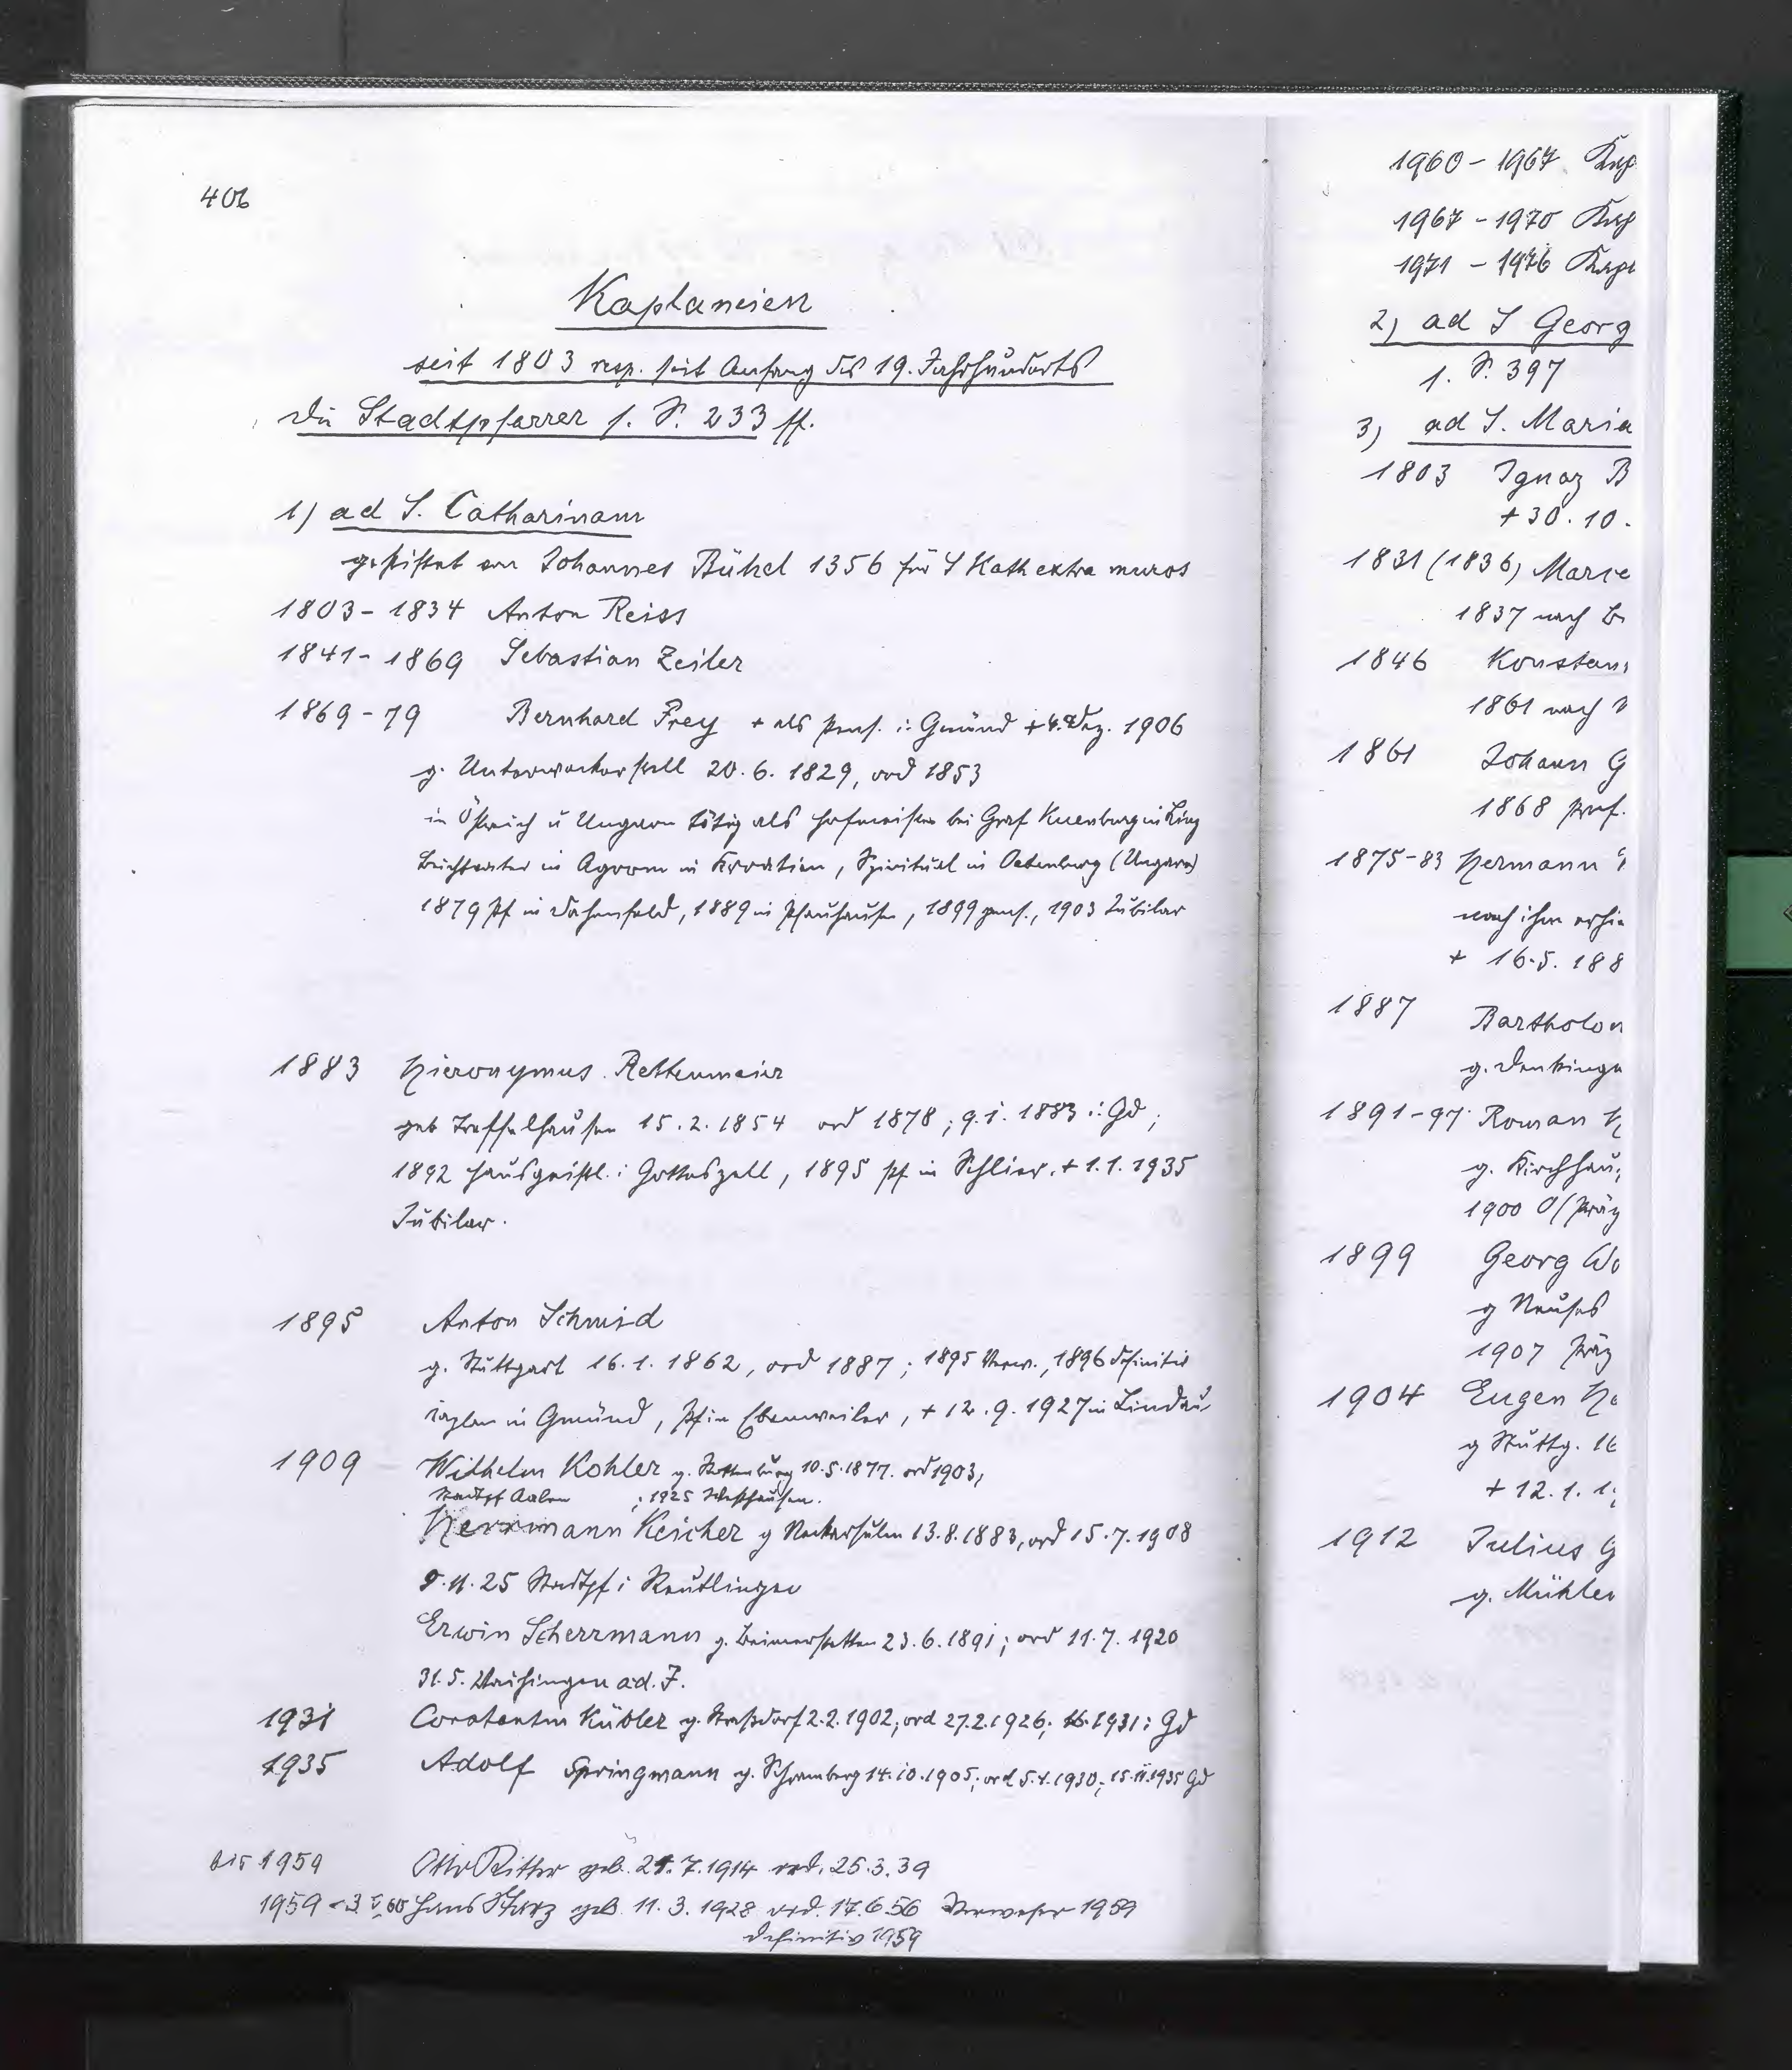 406
Kaplaneien
seit 1803 resp. seit Anfang des 19. Jahrhunderts
Die Stadtpfarrer s. S. 233 ff.
1) ad S. Catharinam
gestiftet von Johannes Bühel 1356 für S Kath extra muros
1803 - 1834 Anton Reiss
1841 - 1869 Sebastian Zeiler
1869 - 79 Bernhard Frey + als pens. i: Gmünd + 4. Dez. 1906
g. Unterwachinger 20. 6. 1829, ord 1853
in Östreich u Ungarn tätig als Hofmeister bei Graf Kuenburg in Linz
Beichtvater in Agram in Kroatien, Spiritual in Oedenburg (Ungarn)
1879 Pf in Dahenfeld, 1889 in Pfauhausen, 1899 pens., 1903 Jubilar
1883 Hieronymus Rettenmeier
geb Treffelhausen 15. 2. 1854 ord 1878; 9. i. 1883 i: Gd;
1892 Hausgeistl. i Gotteszell, 1895 Pf in Schlier. + 1. 1. 1935
Jubilar.
1895 Anton Schmid
g. Stuttgart 16. 1. 1862, ord 1887; 1895 Verw., 1896 definitiv
Kaplan in Gmünd, Pf in Ebenweiler, + 12. 9. 1927 in Lindau
1909 Wilhelm Kohler g. Rottenburg 10. 5. 1877. ord 1903,
Stadtpf Aalen ; 1925 Westhausen.
Herrmann Keicher g Neckarsulm 13. 8. 1883, ord 15. 7. 1908
9. 11. 25 Stadtpf i Reutlingen
Erwin Scherrmann g. Beimerstetten 23. 6. 1891; ord 11. 7. 1920
31. 5. Vaihingen a. d. F.
1931 Constantin Kübler g. Straßdorf 2. 2. 1902, ord 27. 2. 1926; 16. 1931 i Gd
1935 Adolf Springmann g. Schramberg 14. 10. 1905; ord 5. 4. 1930; 15. II. 1935 Gd
bis 1959 Otto Ritter geb. 21. 7. 1914 ord. 25. 3. 39
1959 - 3 V 60 Hans Starz geb. 11. 3. 1928 ord. 17. 6. 56 Verweser 1959
definitiv 1959
1960 - 1967 Kap
1967 - 1970 Kap
1971 - 1976 Kapl
2) ad S Georg
s. S. 397
3) ad S. Maria
1803 Ignaz B
+ 30. 10.
1831 (1836) Marce
1837 nach B
1846 Konstan
1861 nach
1861 Johann G
1868 pens.
1875-83 Hermann
nach ihm erhie
+ 16. 5. 188
1887 Bartholom
g. Denkinge
1891-97 Roman H
g. Kirchhau
1900 O/Präz
1899 Georg Wo
g Neuses
1907 Präz
1904 Eugen He
g Stuttg. 16
+ 12. 1. 1
1912 Julius G
g. Mühlen